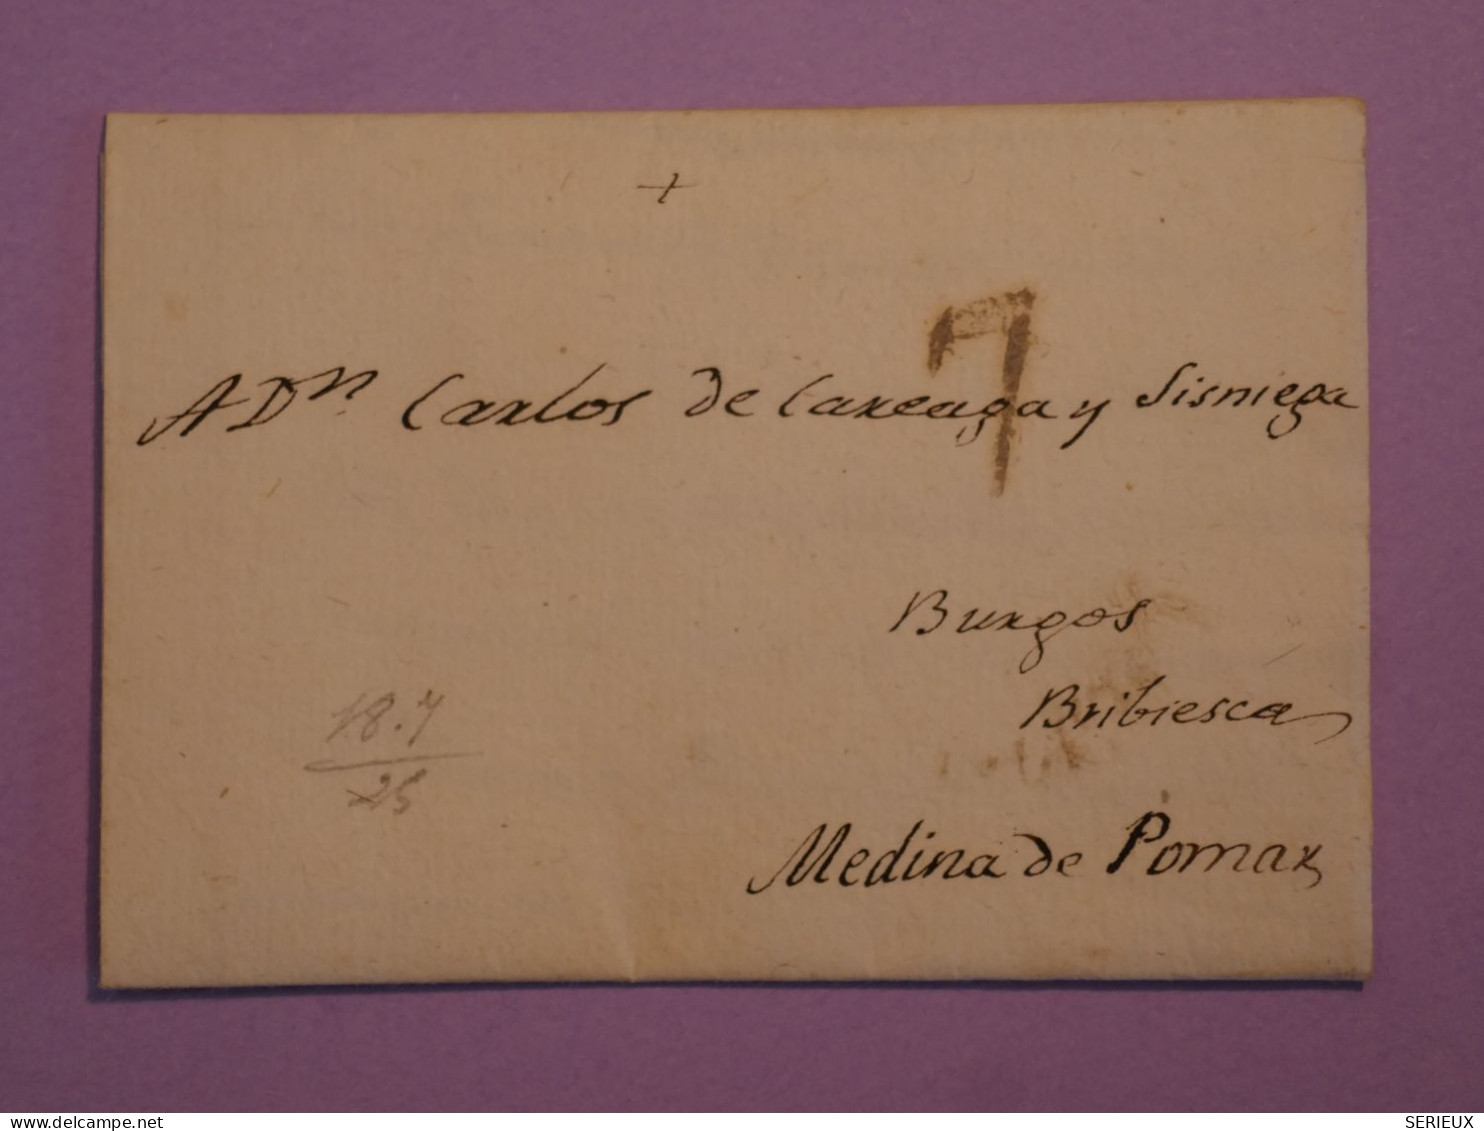 +
7
A Dn. Carlos de Careaga y Sisniega
Burgos
Bribiesca
18.7
25
Medina de Pomar
delcampe.net
SERIEUX